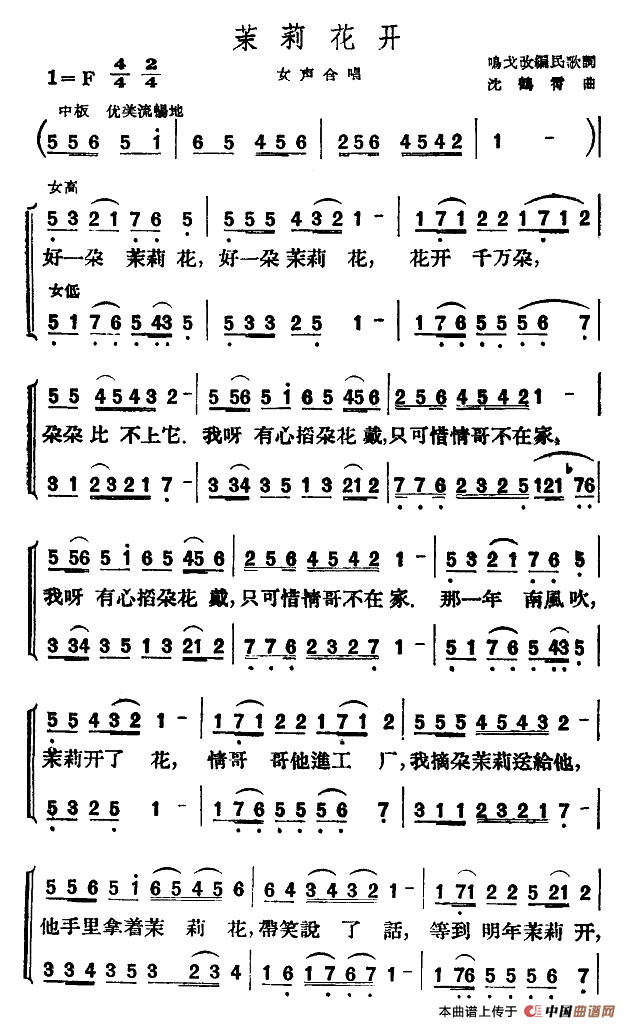 茉莉花开
1=F 4/4 2/4
女声合唱
鳴戈改編民歌詞
沈鶴霄曲
中板 优美流暢地
(5 5 6 5 i | 6 5 4 5 6 | 2 5 6 4 5 4 2 | 1 - )|
女高
5 3 2 1 7 6 5 | 5 5 5 4 3 2 1 - | 1 7 1 2 2 1 7 1 2
好一朵 茉莉花, 好一朵茉莉花, 花开 千万朵,
女低
5 1 7 6 5 4 3 5 | 5 3 3 2 5 1 - | 1 7 6 5 5 5 6 7
5 5 4 5 4 3 2 - | 5 5 6 5 i 6 5 4 5 6 | 2 5 6 4 5 4 2 1 -
朵朵比 不上它. 我呀 有心掐朵花戴,只可惜情哥不在家。
3 1 2 3 2 1 7 - | 3 3 4 3 5 1 3 2 1 2 | 7 7 6 2 3 2 5 1 2 1 b7 6
5 5 6 5 i 6 5 4 5 6 | 2 5 6 4 5 4 2 1 - | 5 3 2 1 7 6 5
我呀 有心掐朵花 戴,只可惜情哥不在 家. 那一年 南風吹,
3 3 4 3 5 1 3 2 1 2 | 7 7 6 2 3 2 7 1 - | 5 1 7 6 5 4 3 5
5 5 4 3 2 1 - | 1 7 1 2 2 1 7 1 2 | 5 5 5 4 5 4 3 2 -
茉莉开了 花, 情哥 哥他進工 厂,我摘朵茉莉送給他,
5 3 2 5 1 - | 1 7 6 5 5 5 6 7 | 3 1 1 2 3 2 1 7 -
5 5 6 5 i 6 5 4 5 6 | 6 4 3 4 3 2 1 - | 1 7 1 2 2 5 2 1 2
他手里拿着茉 莉 花,帶笑說 了 話, 等到 明年茉莉开,
3 3 4 3 5 3 2 3 4 | 6 1 7 6 7 1 - | 1 7 6 5 5 5 6 7
本曲谱上传于 中国曲谱网